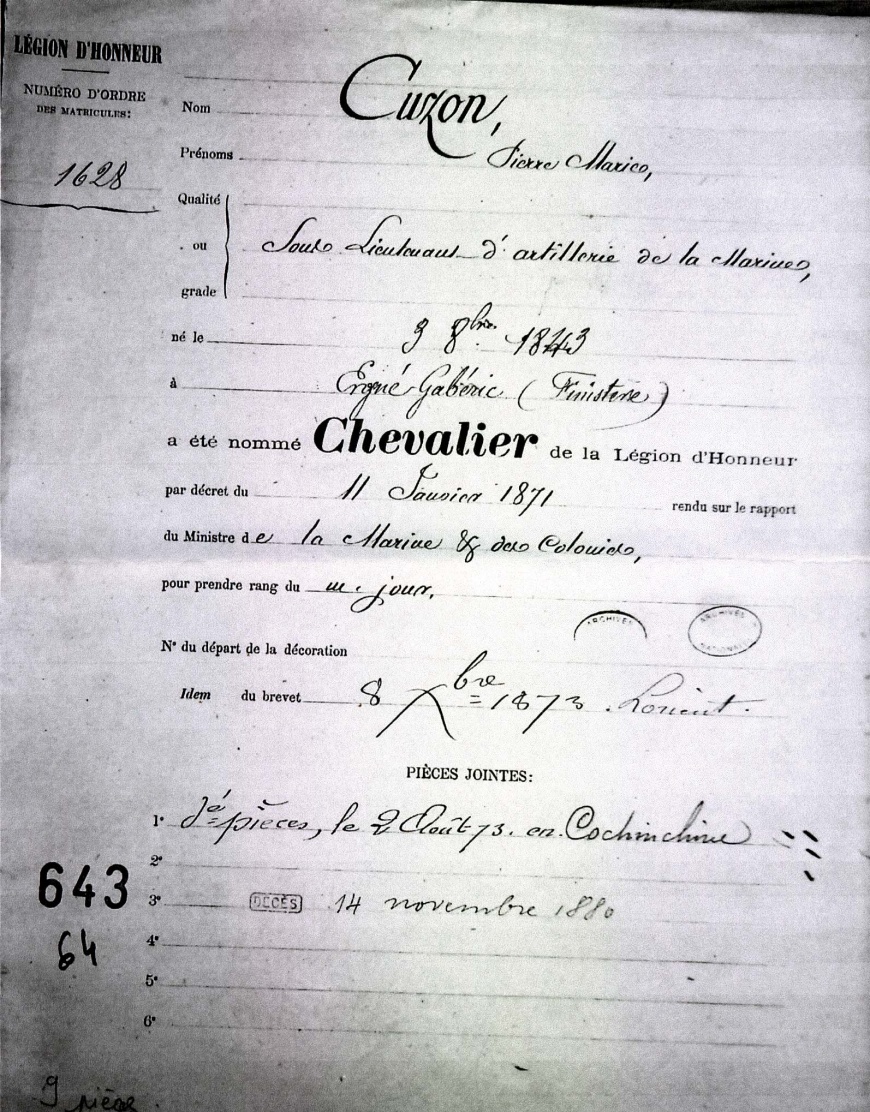 LÉGION D'HONNEUR
NUMÉRO D'ORDRE
DES MATRICULES:
1628
Nom Cuzon,
Prénoms Pierre Marie,
Qualité
ou Sous Lieutenant d'artillerie de la Marine,
grade
né le 9 8bre 1843
à Ergué-Gabéric (Finistere)
a été nommé Chevalier de la Légion d'Honneur
par décret du 11 Janvier 1871 rendu sur le rapport
du Ministre de la Marine & des Colonies,
pour prendre rang du m. jour.
ARCHIVES
ARCHIVES NATIONALES
N° du départ de la décoration
Idem du brevet 8 Xbre 1873. Lorient.
PIÈCES JOINTES:
1° pièces, le 2 Août 73. en Cochinchine
2°
643
3° DÉCÈS 14 novembre 1880
64
4°
5°
6°
9 pièces.